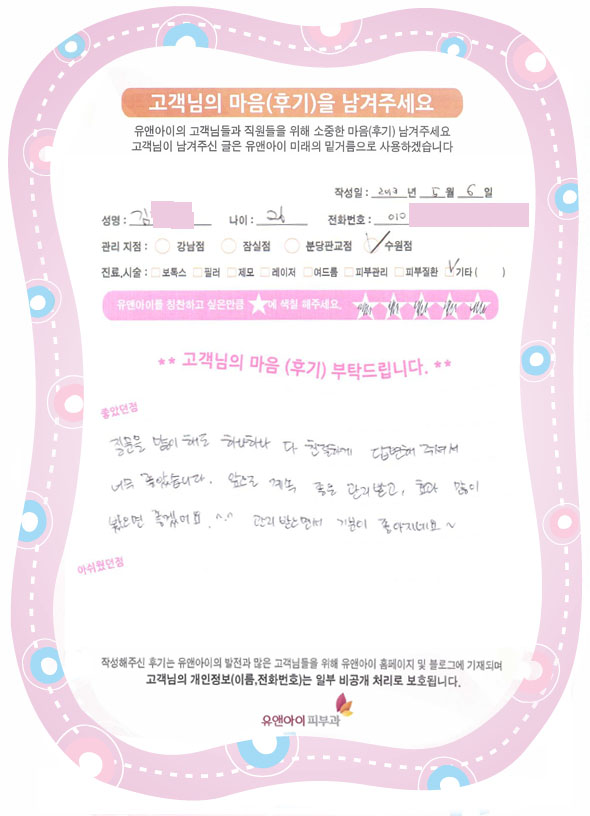 고객님의 마음(후기)을 남겨주세요
유앤아이의 고객님들과 직원들을 위해 소중한 마음(후기) 남겨주세요
고객님이 남겨주신 글은 유앤아이 미래의 밑거름으로 사용하겠습니다
작성일 : 년 5 월 6 일
성명 : 김 나이 : 전화번호 : 010
관리 지점 : 강남점 잠실점 분당판교점 수원점
진료,시술 : 보톡스 필러 제모 레이저 여드름 피부관리 피부질환 기타 ( )
유앤아이를 칭찬하고 싶은만큼 ★에 색칠 해주세요.
** 고객님의 마음 (후기) 부탁드립니다. **
좋았던점
질문을 많이 해도 하나하나 다 친절하게 답변해 주셔서
너무 좋았습니다. 앞으로 계속 좋은 관리받고, 효과 많이
봤으면 좋겠어요. ^.^ 관리받으면서 기분이 좋아지네요 ~
아쉬웠던점
작성해주신 후기는 유앤아이의 발전과 많은 고객님들을 위해 유앤아이 홈페이지 및 블로그에 기재되며
고객님의 개인정보(이름,전화번호)는 일부 비공개 처리로 보호됩니다.
유앤아이피부과